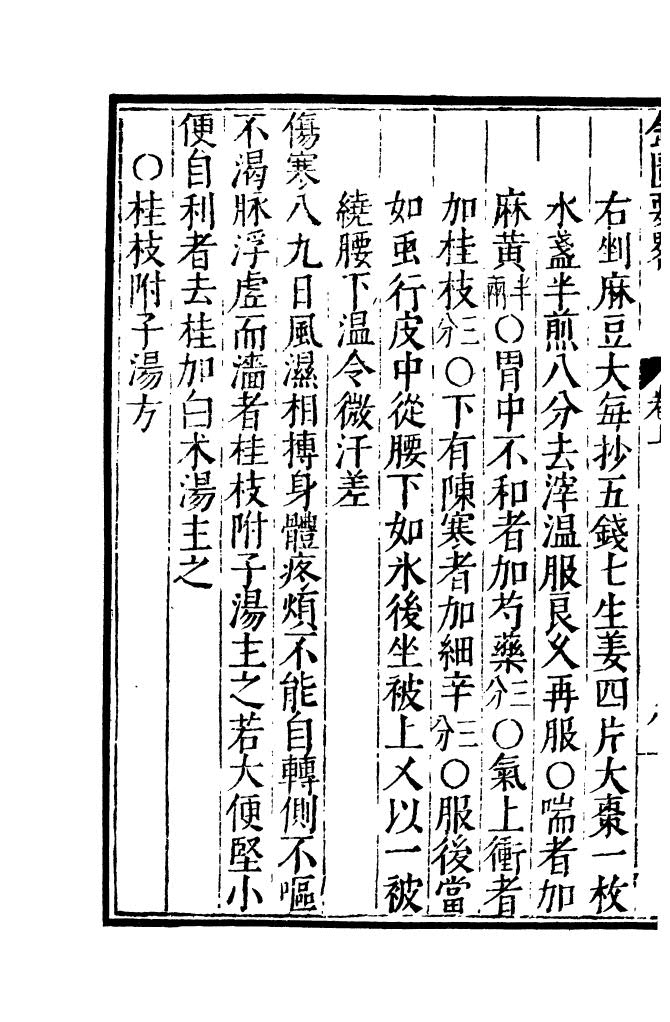 卷上
右剉麻豆大每抄五錢七生姜四片大棗一枚
水盞半煎八分去滓温服良乆再服〇喘者加
麻黃半兩〇胃中不和者加芍藥三分〇氣上衝者
加桂枝三分〇下有陳寒者加細辛三分〇服後當
如䖝行皮中從腰下如氷後坐被上又以一被
繞腰下温令微汗差
傷寒八九日風濕相摶身體疼煩不能自轉側不嘔
不渴脉浮虚而濇者桂枝附子湯主之若大便堅小
便自利者去桂加白术湯主之
〇桂枝附子湯方